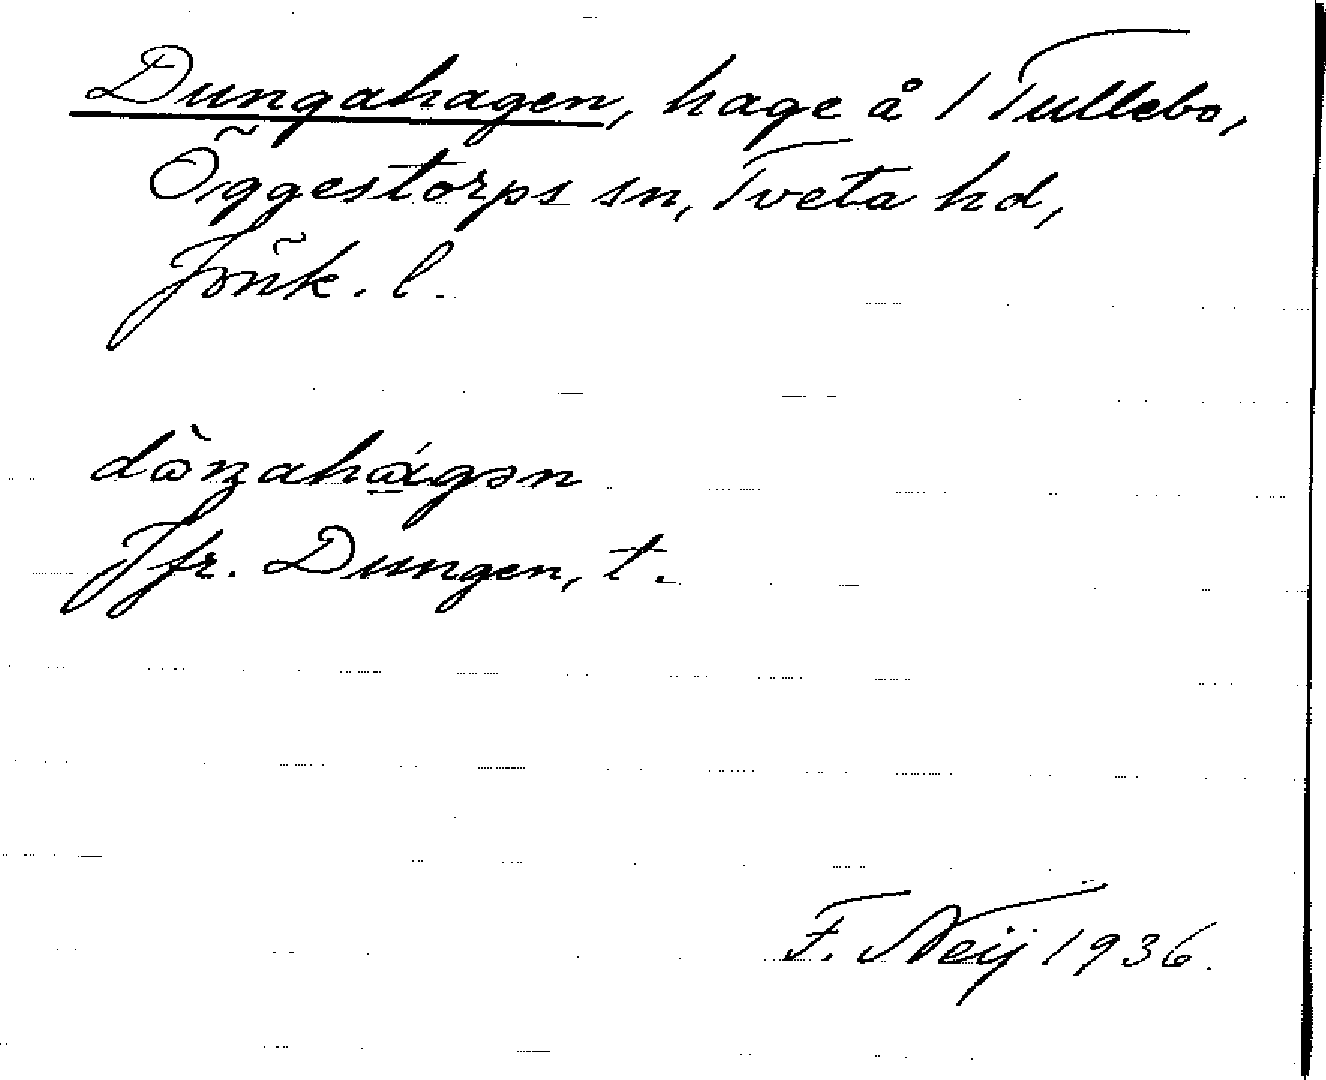 Dungahagen, hage å 1 Tullebo,
Öggestorps sn, Tveta hd,
Jönk. l.
Jfr. Dungen, t.
F. Neij 1936.